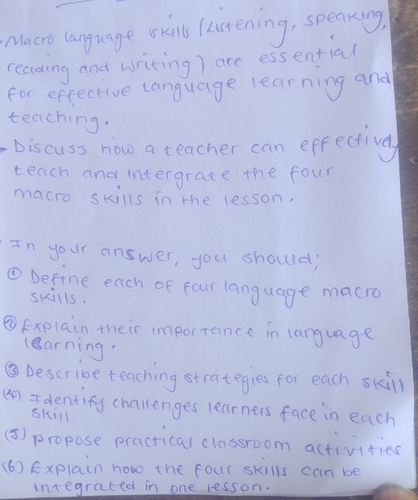 . Macro language skills (Listening, speaking,
reading and writing) are essential
for effective language learning and
teaching.
- Discuss how a teacher can effectively
teach and intergrate the four
macro skills in the lesson.
. In your answer, you should;
① Define each of four language macro
skills.
② Explain their importance in language
learning.
③ Describe teaching strategies for each skill
(4) Identify challenges learners face in each
skill
(5) propose practical classroom activities
(6) Explain how the four skills can be
integrated in one lesson.